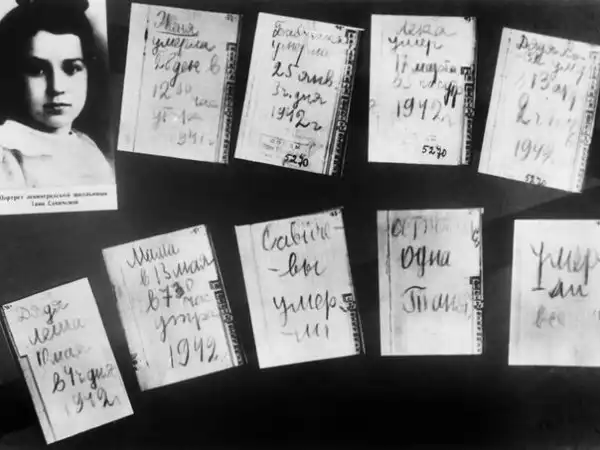 Портрет ленинградской школьницы
Тани Савичевой
Женя
умерла
28 дек в
12 30 час
утра
1941 г
Бабушка
умерла
25 янв.
3 ч. дня
1942 г.
5270
Лека
умер
17 марта
в 5 час утр
1942 г.
5270
Дядя
умер
13 апр
2 ч
1942
5270
Дядя
Леша
10 мая
в 4 ч дня
1942 г
Мама
в 13 мая
в 7 30 час
утра
1942 г.
Савиче-
-вы
умер-
-ли
одна
Таня
умер
ли
все